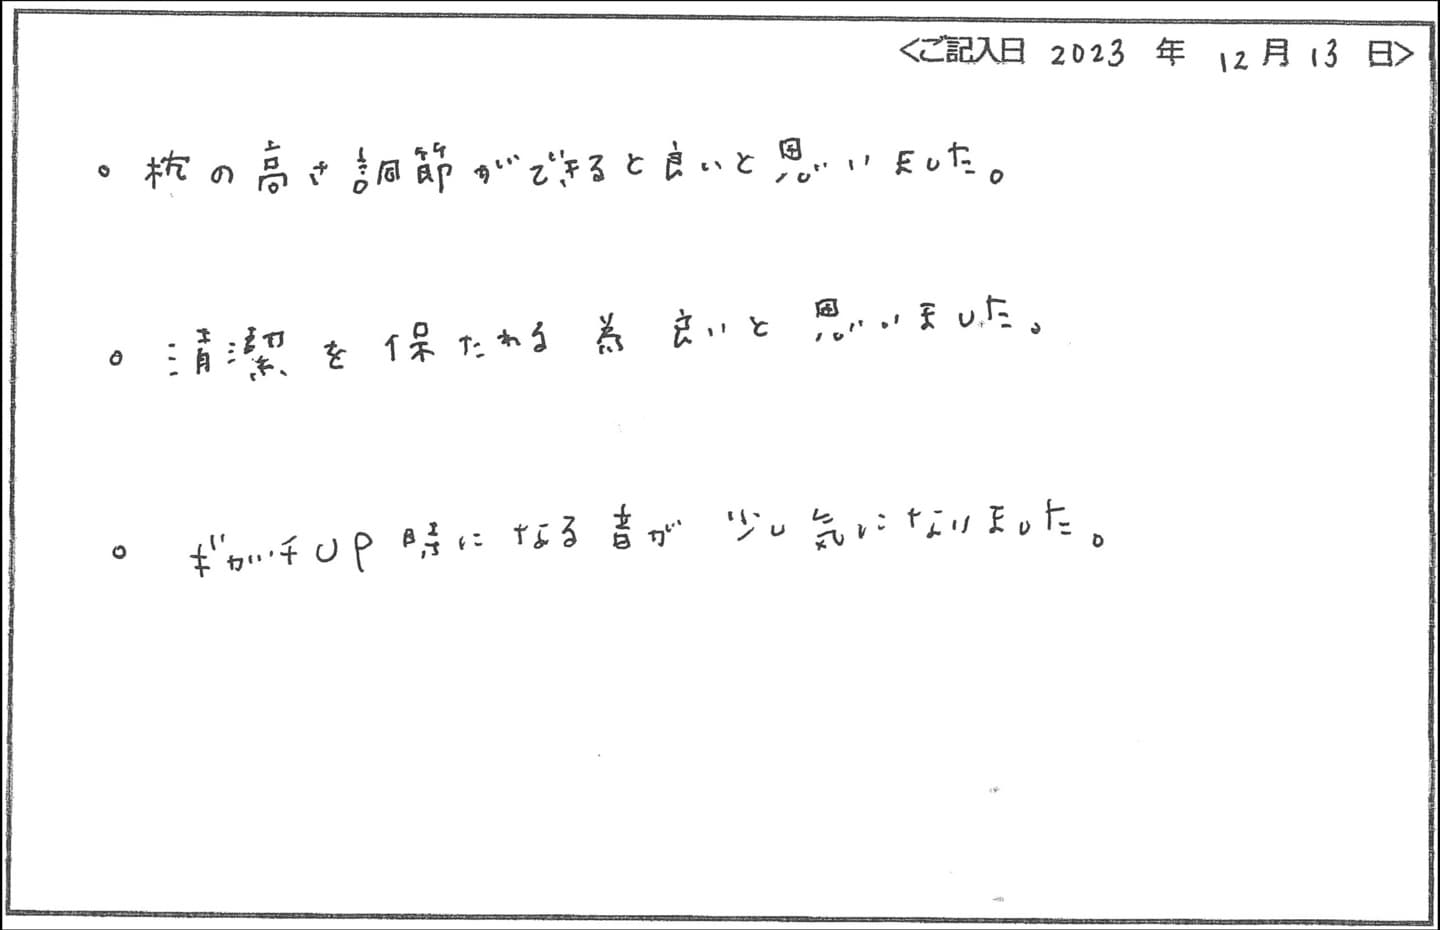 <ご記入日 2023 年 12月 13 日>
。枕の高さ調節ができると良いと思いました。
。清潔を保たれる為 良いと思いました。
。ギャッチUP時になる音が少し気になりました。